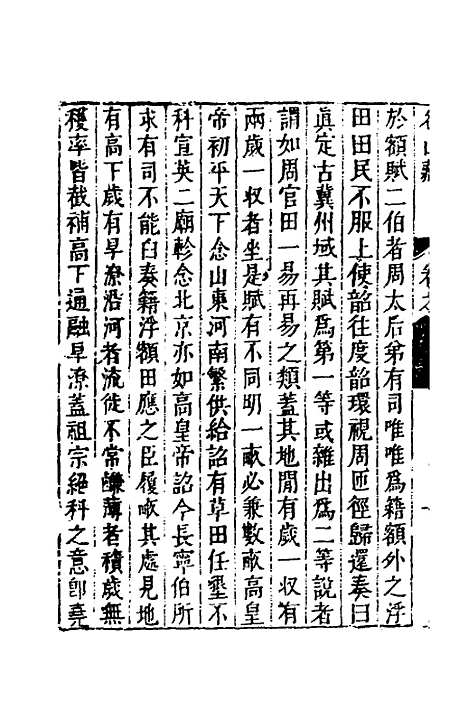 於額賦二伯者周太后弟有司唯唯爲籍額外之浮
田田民不服上使韶往度韶環視周匝徑歸還奏曰
眞定古冀州域其賦爲第一等或雜出爲二等說者
謂如周官田一易再易之類蓋其地間有歲一收有
兩歲一收者坐是賦有不同明一畝必兼數畝高皇
帝初平天下念山東河南繁供給詔有草田任墾不
科宣英二廟軫念北京亦如高皇帝詔今長寧伯所
求有司不能臼奏籍浮額田應之臣履畝其處見地
有高下歲有旱潦沿河者流徙不常磏薄者積歲無
稷率皆截補高下通融旱潦蓋祖宗絕科之意卽堯